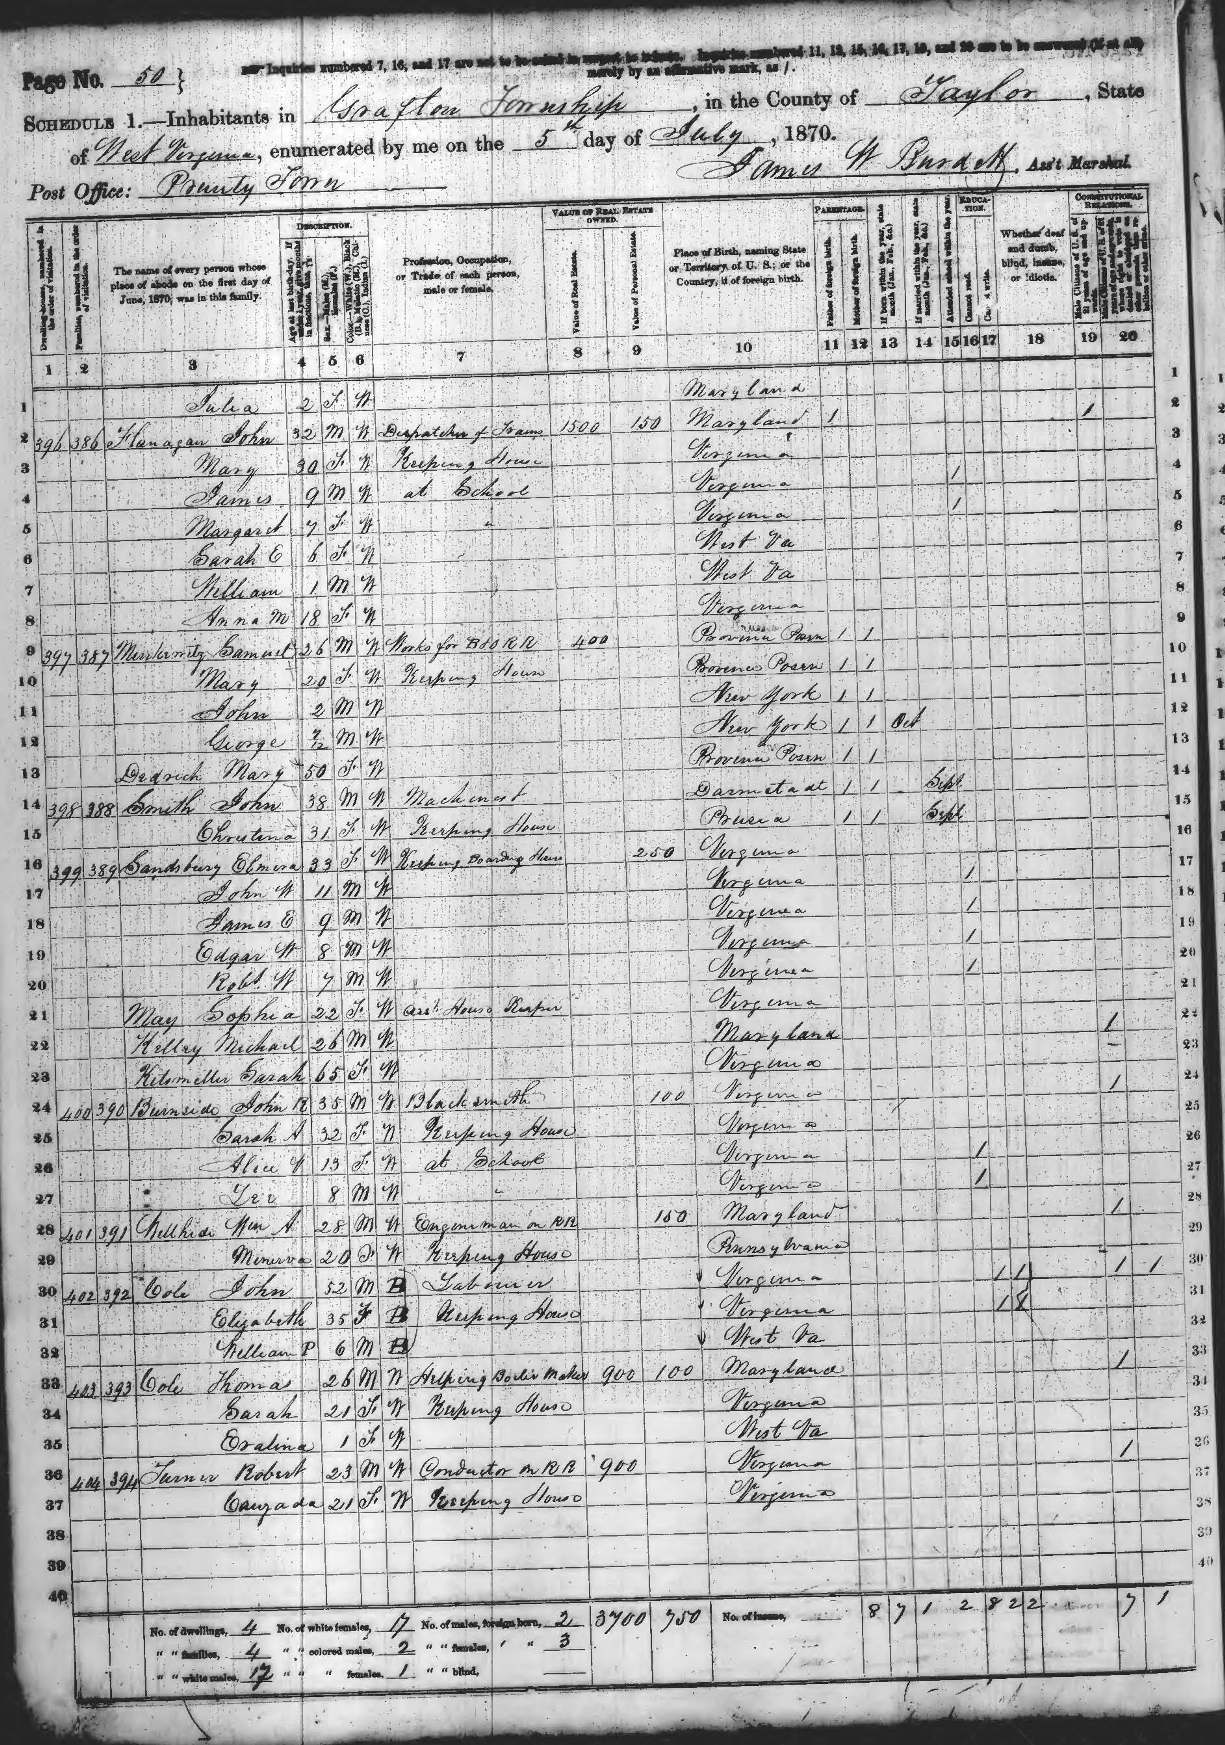 Page No. 50
Inquiries numbered 7, 16, and 17 are not to be asked in respect to infants. Inquiries numbered 11, 12, 15, 16, 17, 19, and 20 are to be answered (if at all) merely by an affirmative mark, as /.
SCHEDULE 1.—Inhabitants in Grafton Township, in the County of Taylor, State
of West Virginia, enumerated by me on the 5th day of July, 1870.
Post Office: Prunty Town
James W Burdett, Ass't Marshal.
DESCRIPTION. VALUE OF REAL ESTATE OWNED. PARENTAGE. EDUCATION. CONSTITUTIONAL RELATIONS.
Dwelling-houses, numbered in the order of visitation.
Families, numbered in the order of visitation.
The name of every person whose place of abode on the first day of June, 1870, was in this family.
Profession, Occupation, or Trade of each person, male or female.
Value of Real Estate.
Value of Personal Estate.
Place of Birth, naming State or Territory of U. S.; or the Country, if of foreign birth.
Father of foreign birth.
Mother of foreign birth.
If born within the year, state month (Jan., Feb., &c.)
If married within the year, state month (Jan., Feb., &c.)
Attended school within the year.
Cannot read.
Cannot write.
Whether deaf and dumb, blind, insane, or idiotic.
1 2 3 4 5 6 7 8 9 10 11 12 13 14 15 16 17 18 19 20
1 Julia 2 F W Maryland
2 396 386 Flanagan John 32 M W Dispatcher of Trains 1500 150 Maryland 1 1
3 Mary 30 F W Keeping House Virginia
4 James 9 M W at School Virginia 1
5 Margaret 7 F W " Virginia 1
6 Sarah E 6 F W West Va
7 William 1 M W West Va
8 Anna M 18 F W Virginia
9 397 387 Samuel 26 M W Works for B&O RR 400 Province Posen 1 1
10 Mary 20 F W Keeping House Province Posen 1 1
11 John 2 M W New York 1 1
12 George 7/12 M W New York 1 1 Oct
13 Dedrich Mary 50 F W Province Posen 1 1
14 398 388 Smith John 38 M W Machinest Darmstadt 1 1 Sept
15 Christina 31 F W Keeping House Prusia 1 1 Sept
16 399 389 Sandsbury Elmira 33 F W Keeping Boarding House 250 Virginia
17 John W 11 M W Virginia 1
18 James E 9 M W Virginia 1
19 Edgar W 8 M W Virginia 1
20 Robt W 7 M W Virginia 1
21 May Sophia 22 F W asst House Keeper Virginia
22 Kelley Michael 26 M W Maryland 1
23 Kitsmiller Sarah 65 F W Virginia
24 400 390 Burnside John R 35 M W Blacksmith 100 Virginia 1
25 Sarah A 32 F W Keeping House Virginia
26 Alice V 13 F W at School Virginia 1
27 Lee 8 M W " Virginia 1
28 401 391 Wellhide Wm A 28 M W Engineman on RR 150 Maryland 1
29 Minerva 20 F W Keeping House Pennsylvania
30 402 392 Cole John 52 M B Labourer Virginia 1 1 1 1
31 Elizabeth 35 F B Keeping House Virginia 1 1
32 William P 6 M B West Va
33 403 393 Cole Thomas 26 M W Helping Boiler Maker 900 100 Maryland 1
34 Sarah 21 F W Keeping House Virginia
35 Evalina 1 F W West Va
36 404 394 Turner Robert 23 M W Conductor on RR 900 Virginia 1
37 21 F W Keeping House Virginia
38
39
40
No. of dwellings, 4 No. of white females, 17 No. of males, foreign born, 2 3700 750 No. of insane, 8 7 1 2 8 2 2 7 1
" " families, 4 " " colored males, 2 " " females, " " 3
" " white males, 17 " " " females, 1 " " blind,